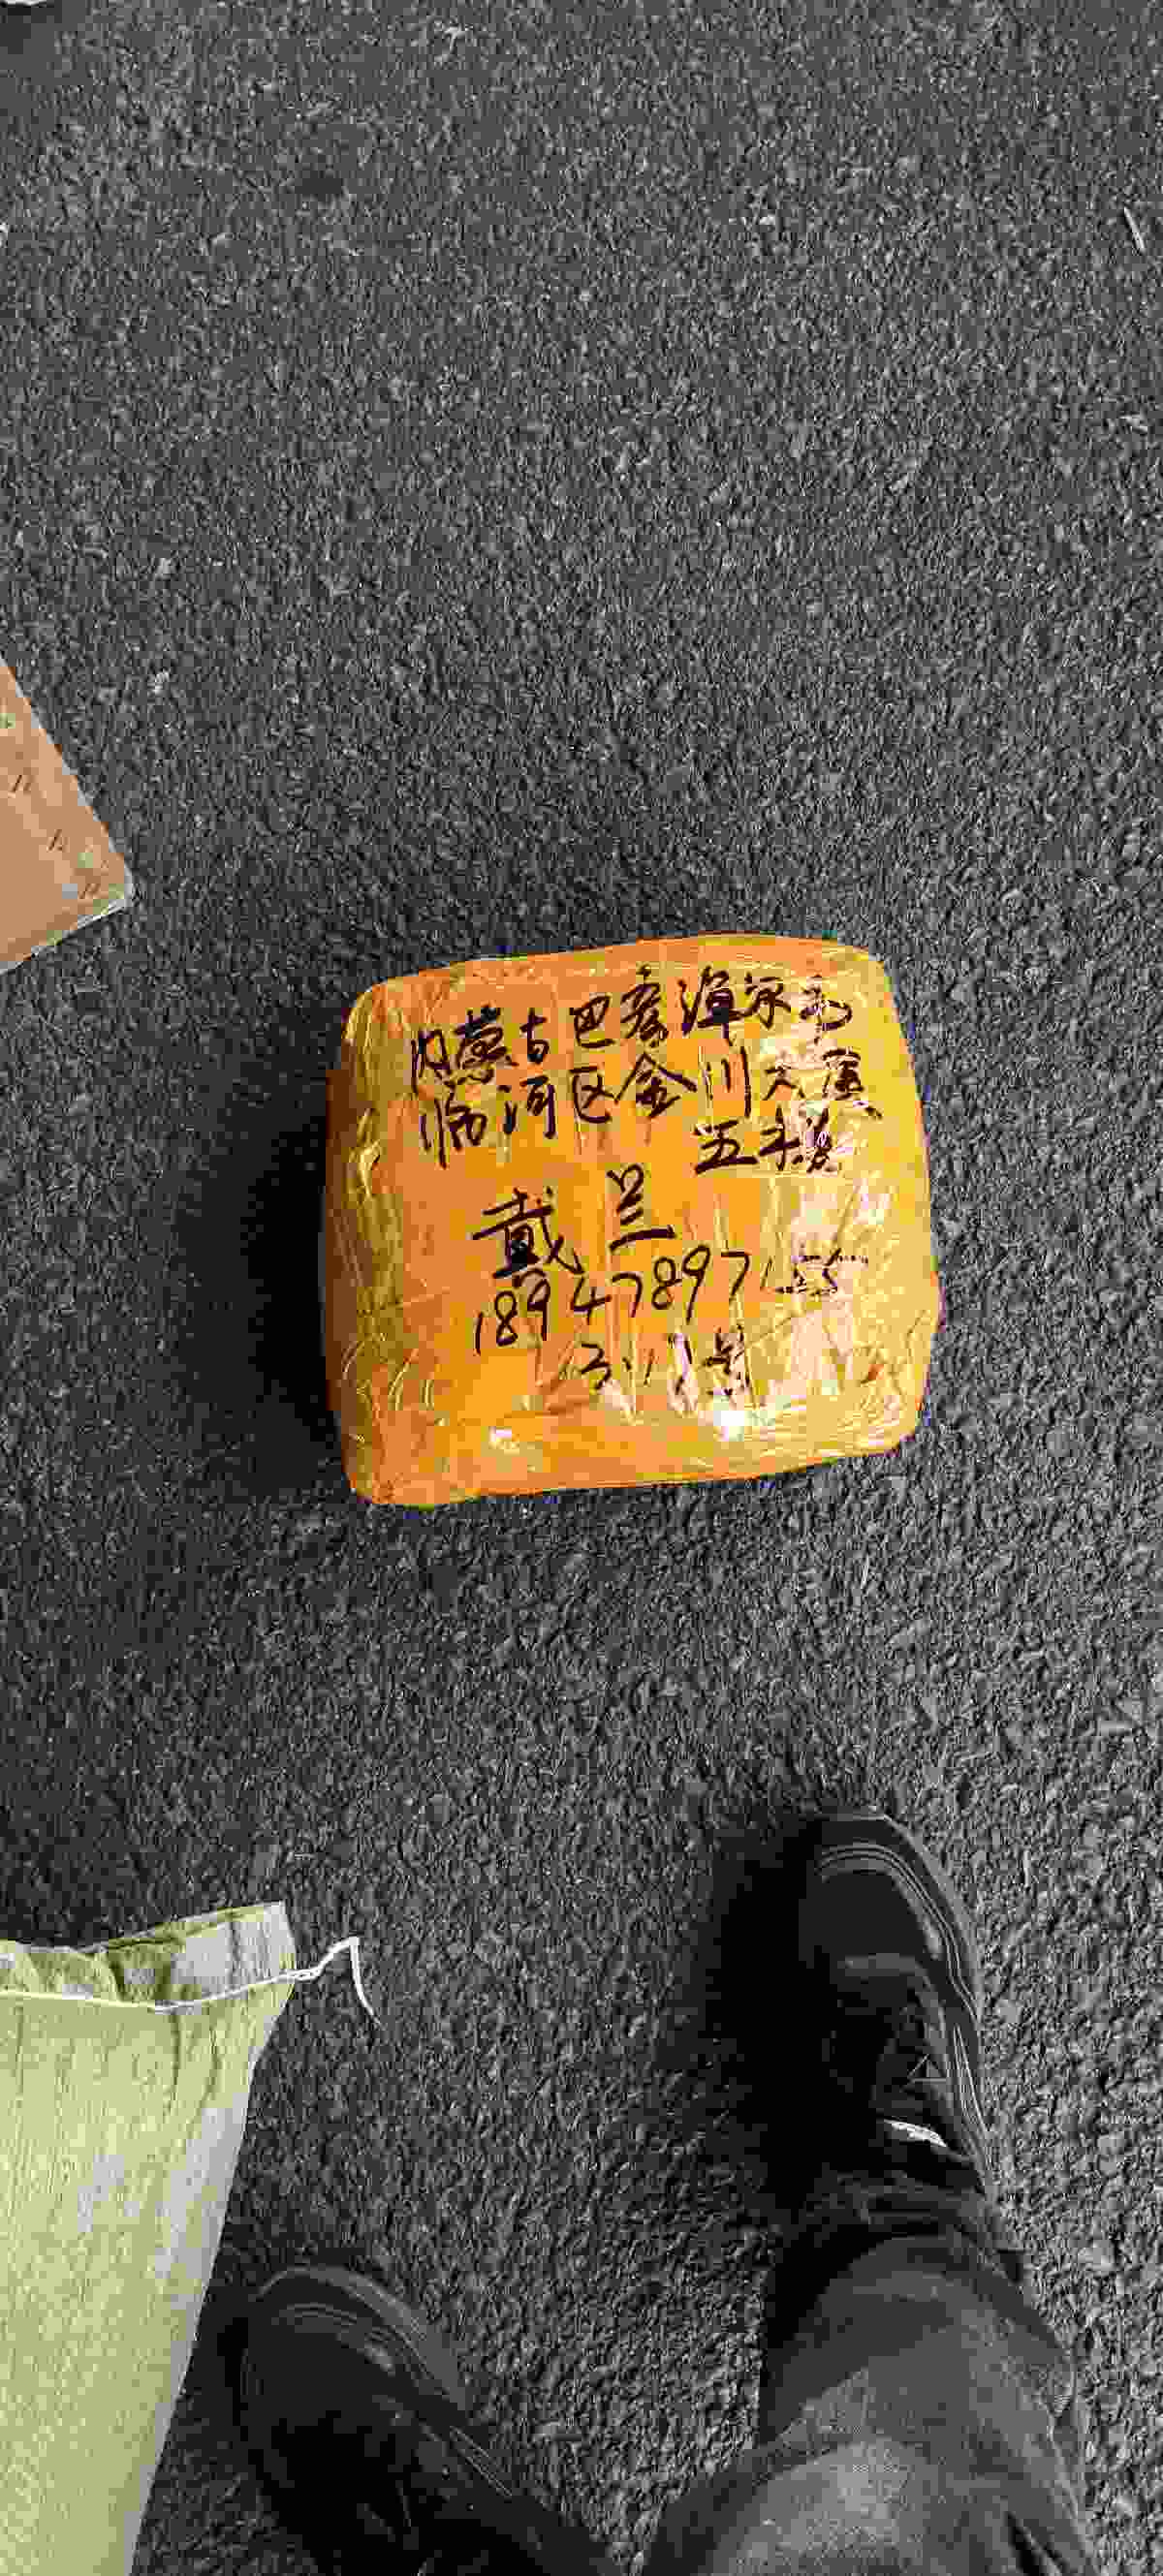 内蒙古巴彦淖尔市
临河区金川大道
五术馆
戴兰
18947897155